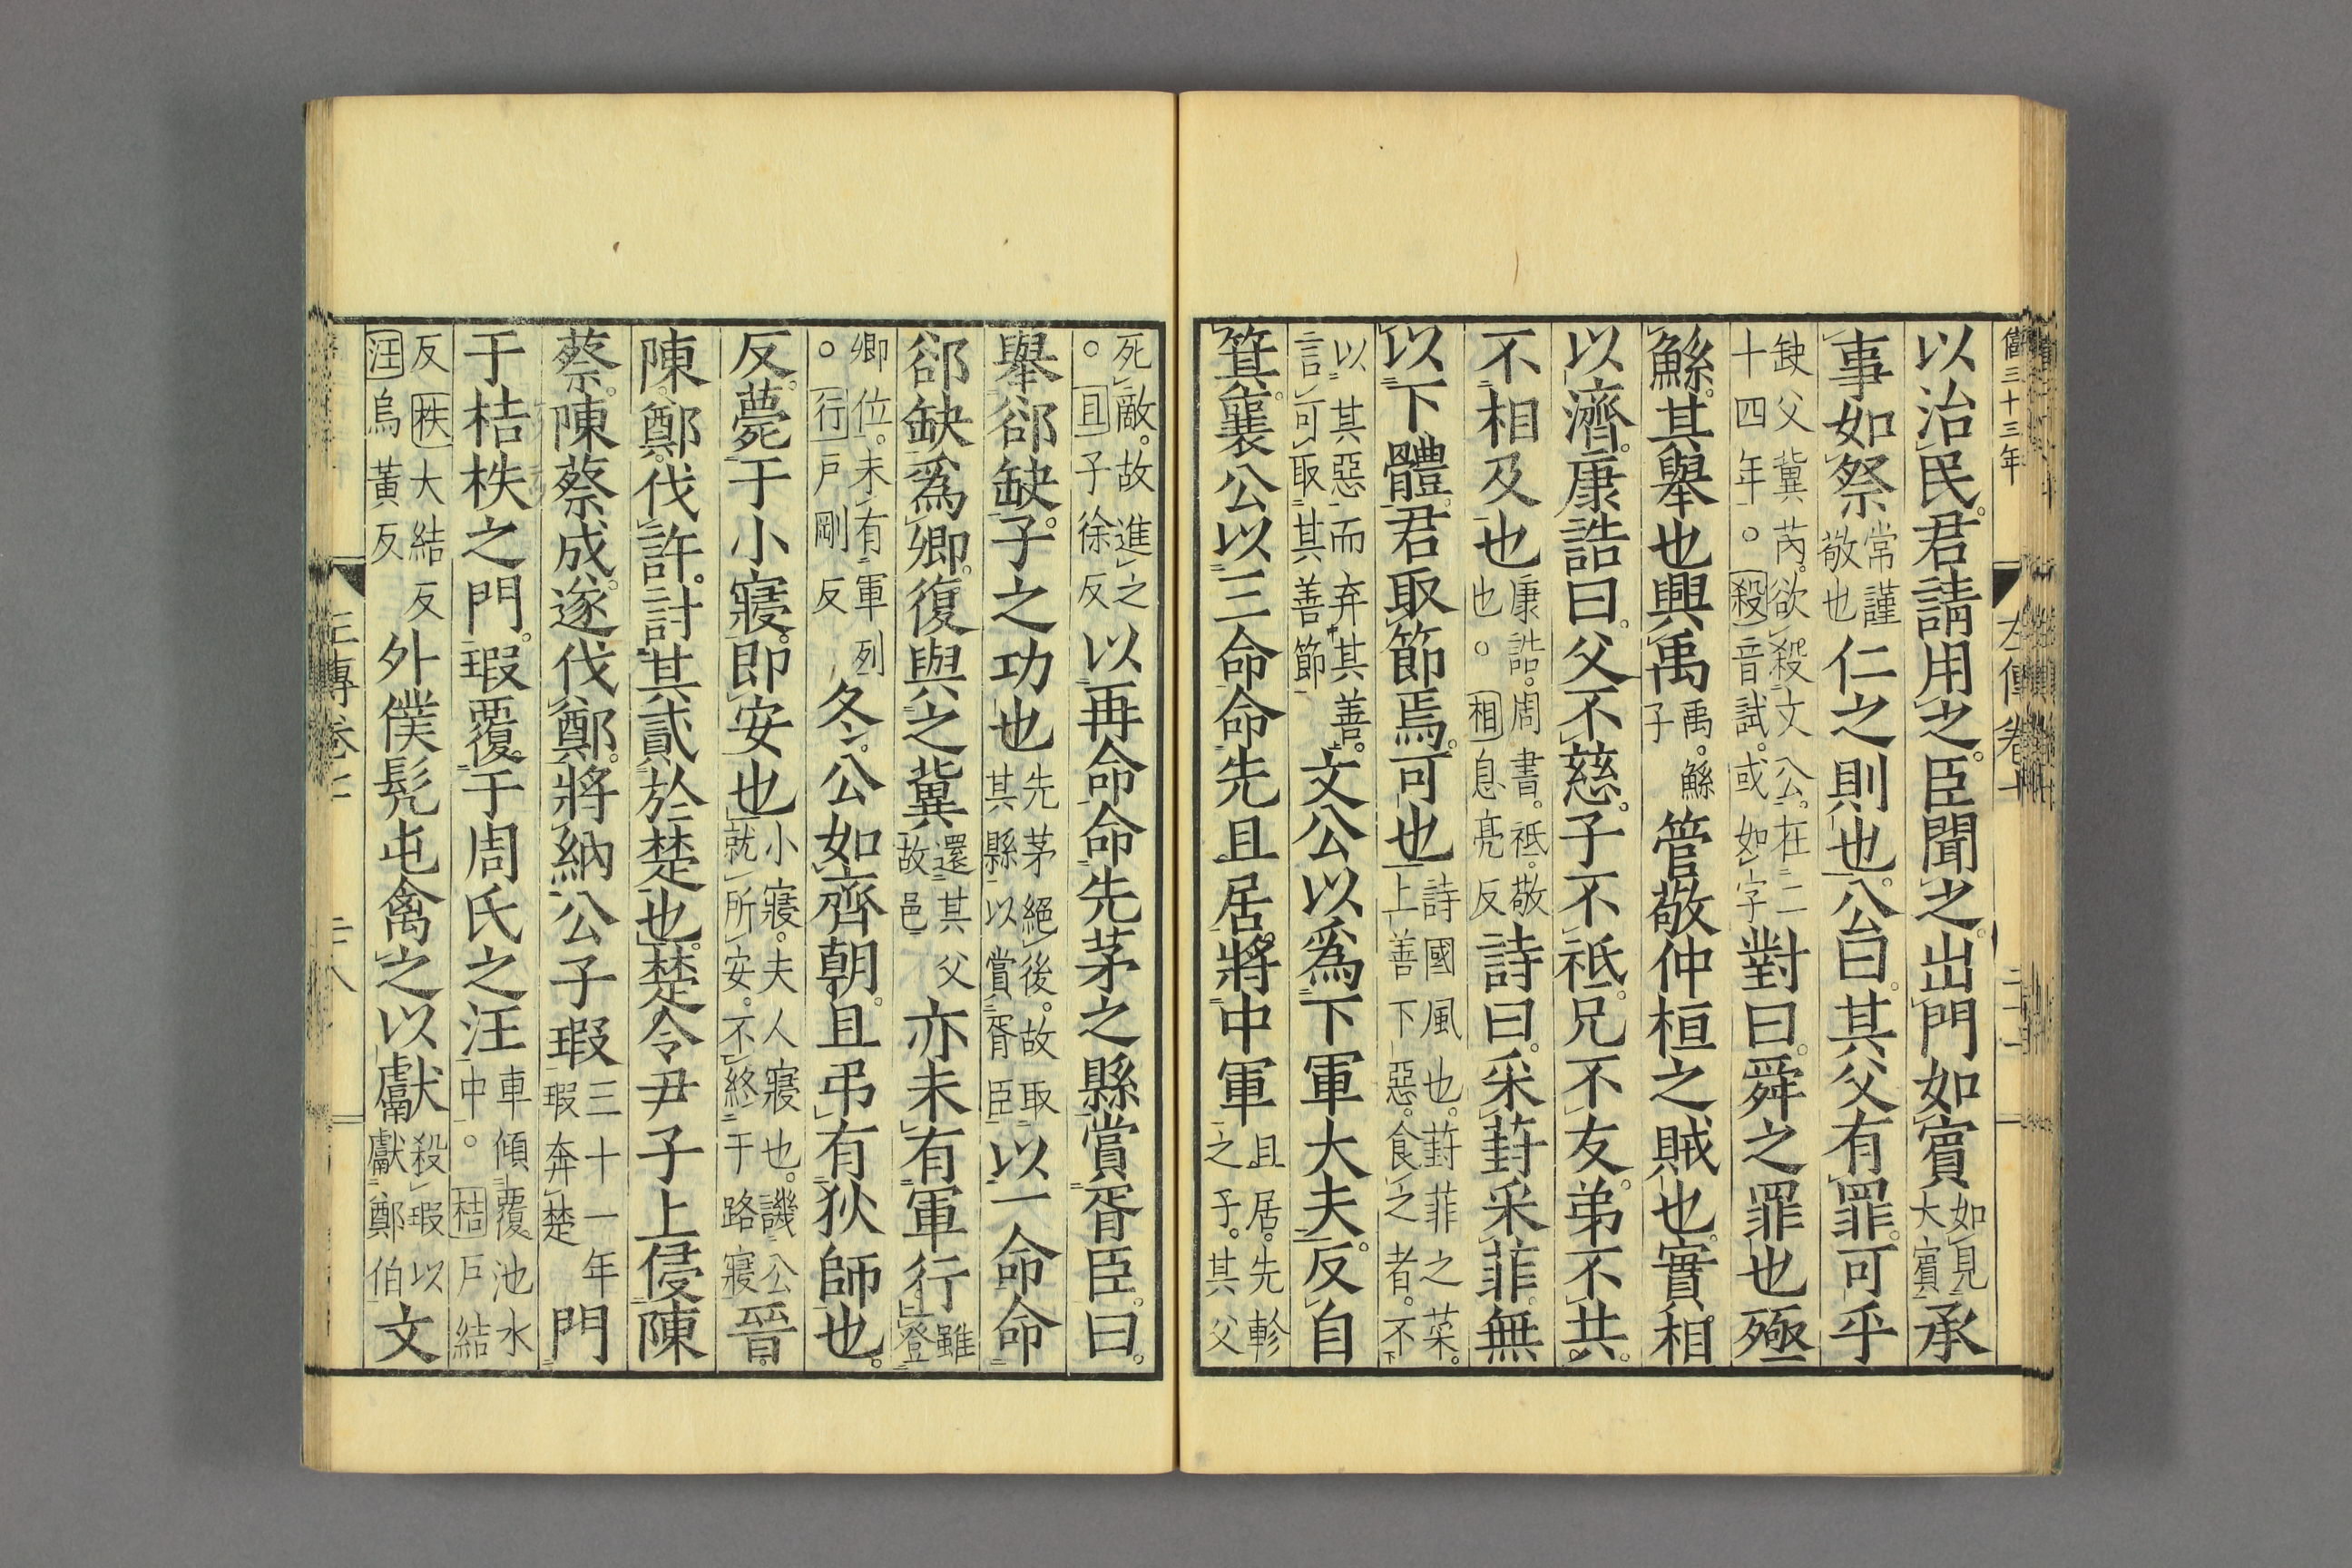 僖三十三年
左傳卷七
以治民。君請用之。臣聞之。出門如賓如見大賓承
事如祭常謹敬也仁之則也。公曰。其父有罪。可乎
缺父冀芮。欲殺文公。在二十四年。○殺音試。或如字對曰。舜之罪也殛
鯀。其舉也興禹禹。鯀子管敬仲桓之賊也。實相
以濟。康誥曰。父不慈。子不祗。兄不友。弟不共。
不相及也康誥。周書。祗。敬也。○相息亮反詩曰。采葑采菲。無
以下體。君取節焉。可也詩國風也。葑菲之菜。上善下惡。食之者。不
以其惡而弃其善。言可取其善節文公以爲下軍大夫。反自
箕。襄公以三命命先且居。將中軍且居。先軫之子。其父
死敵。故進之。○且子徐反以再命命先茅之縣賞胥臣。曰。
舉郤缺。子之功也先茅絕後。故取其縣以賞胥臣以一命命
郤缺爲卿。復與之冀還其父故邑亦未有軍行。雖登
卿位。未有軍列。○行戶剛反冬。公如齊朝。且弔有狄師也。
反。薨于小寢。即安也小寢。夫人寢也。譏公就所安。不終于路寢晉。
陳。鄭。伐許。討其貳於楚也。楚令尹子上侵陳
蔡。陳蔡成。遂伐鄭。將納公子瑕三十一年瑕奔楚門
于桔柣之門。瑕覆。于周氏之汪車傾覆池水中。○桔戶結
反柣大結反汪烏黃反外僕髡屯禽之以獻殺瑕以獻鄭伯文